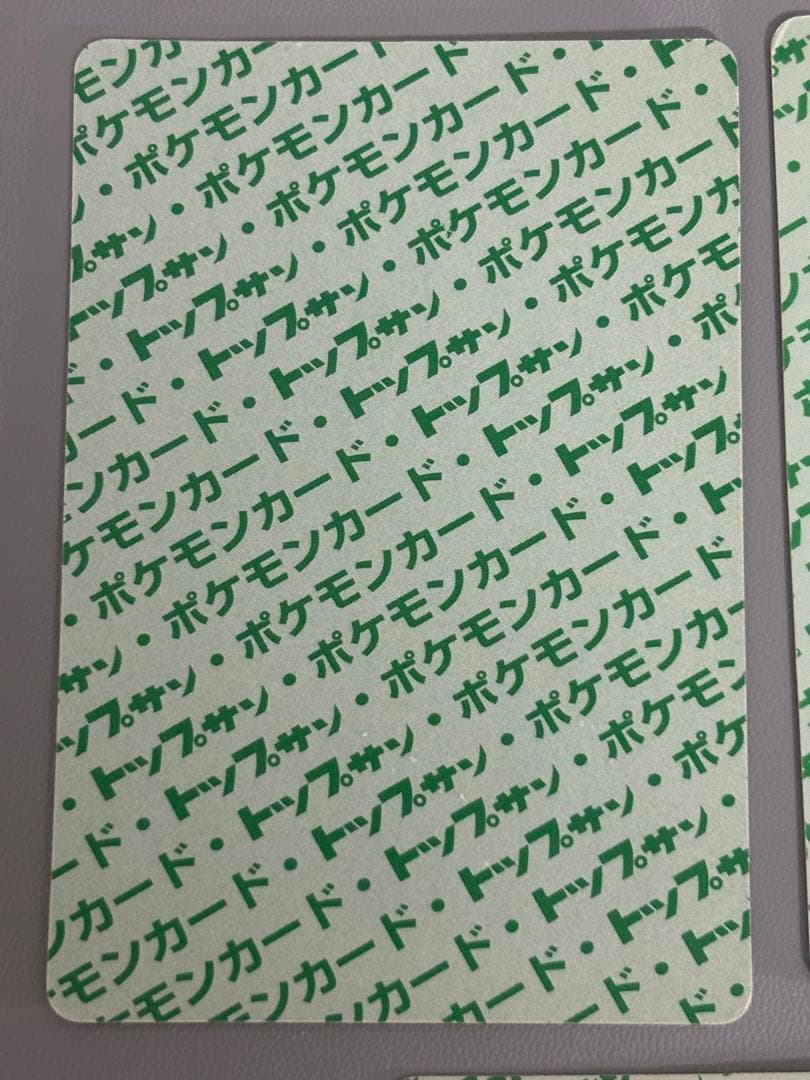 モンカ
ポケモンカー
・ポケモンカー
プサン・ポケモンカー
トップサン・ポケモンカード・
ド・トップサン・ポケモンカード・
ード・トップサン・ポケモンカード・
カード・トップサン・ポケモンカード
ンカード・トップサン・ポケモンカー
ケモンカード・トップサン・ポケモン
・ポケモンカード・トップサン・ポ
サン・ポケモンカード・トップサン
ップサン・ポケモンカード・トップサ
・トップサン・ポケモンカード・トッ
ード・トップサン・ポケモンカード
ンカード・トップサン・ポケモンカー
モンカード・トップサン・ポケモン
モンカード・トップサン・ポケ
ンカード・トップサン・
カード・トップサ
ード・トッ
ド・